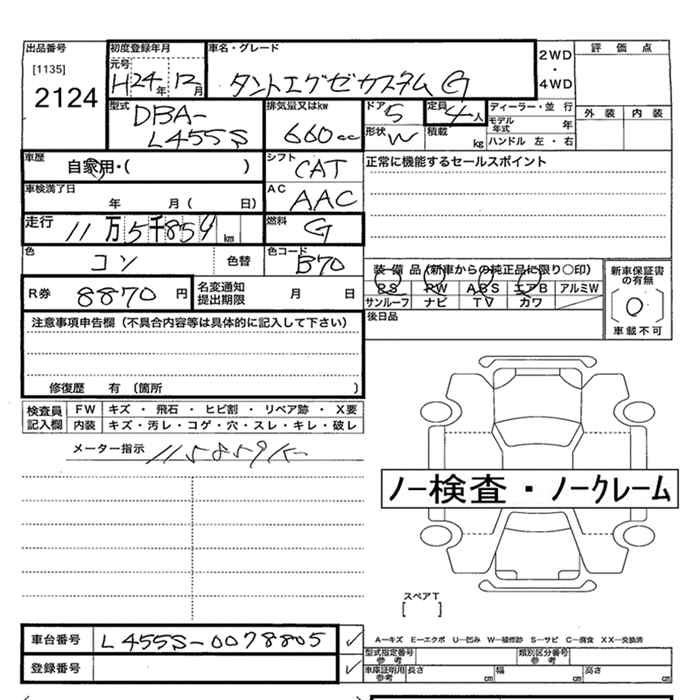 出品番号
[1135]
2124
初度登録年月
元号
H24年12月
車名・グレード
タントエグゼカスタム G
2WD
・
4WD
評価点
外装 内装
型式
DBA-
L455S
排気量又はkw
660cc
ドア
5
定員
4人
形状
W
積載
kg
ディーラー・並行
モデル年式 年
ハンドル 左・右
車歴
自家用・( )
シフト
CAT
正常に機能するセールスポイント
車検満了日
年 月( 日)
AC
AAC
走行
11万5千859km
燃料
G
色
コン
色替
色コード
B70
装備品(新車からの純正品に限り○印)
PS PW ABS エアB アルミW
サンルーフ ナビ TV カワ
新車保証書の有無
車載不可
R券 8870円
名変通知
提出期限
月 日
後日品
注意事項申告欄(不具合内容等は具体的に記入して下さい)
修復歴 有 (箇所 )
検査員
記入欄
FW キズ ・ 飛石 ・ ヒビ割 ・ リペア跡 ・ X要
内装 キズ・汚レ・コゲ・穴・スレ・キレ・破レ
メーター指示 115859K
ノー検査・ノークレーム
スペアT
[ ]
車台番号 L455S-0078805
登録番号
A―キズ E―エクボ U―凹み W―補修跡 S―サビ C―腐食 XX―交換済
型式指定番号
参考
類別区分番号
参考
車庫証明用
参考
長さ cm 幅 cm 高さ cm